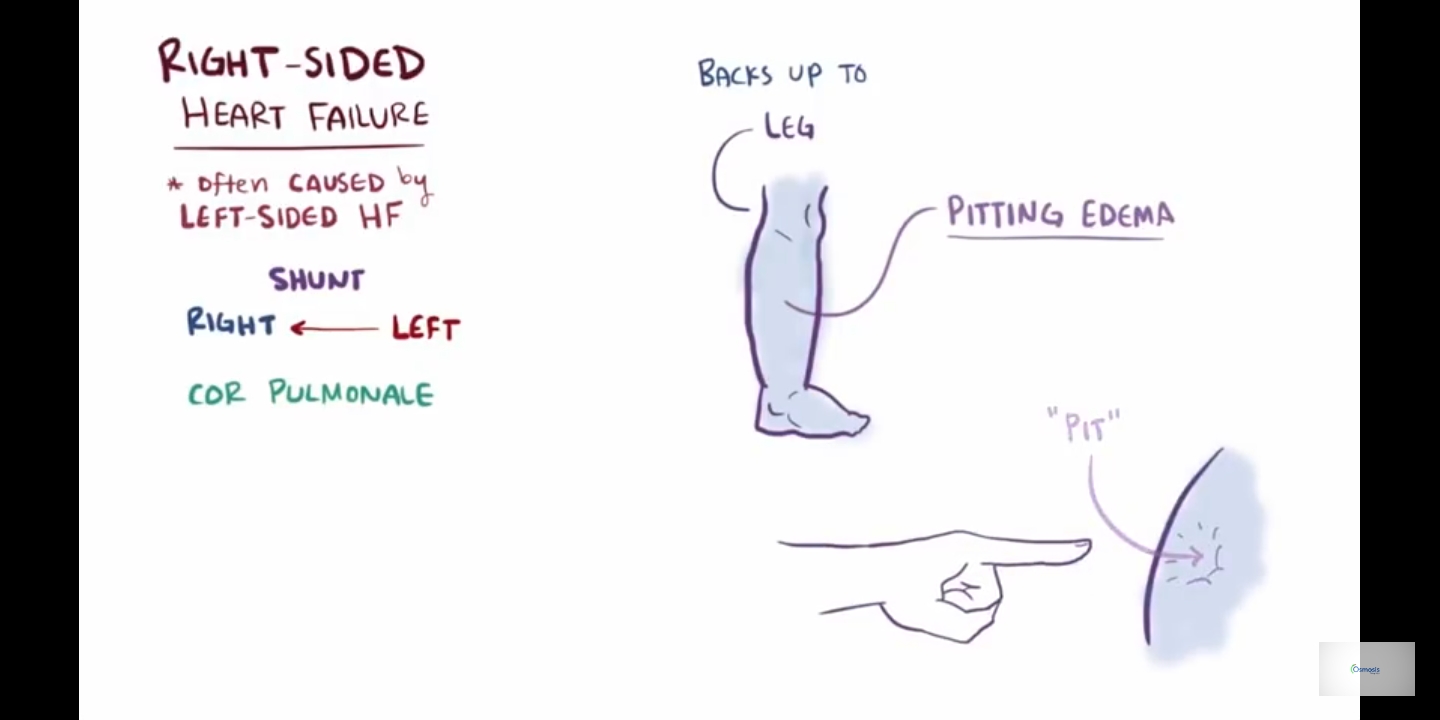 RIGHT-SIDED
HEART FAILURE
* often CAUSED by
LEFT-SIDED HF
SHUNT
RIGHT ← LEFT
COR PULMONALE
BACKS UP TO
LEG
PITTING EDEMA
"PIT"
Osmosis